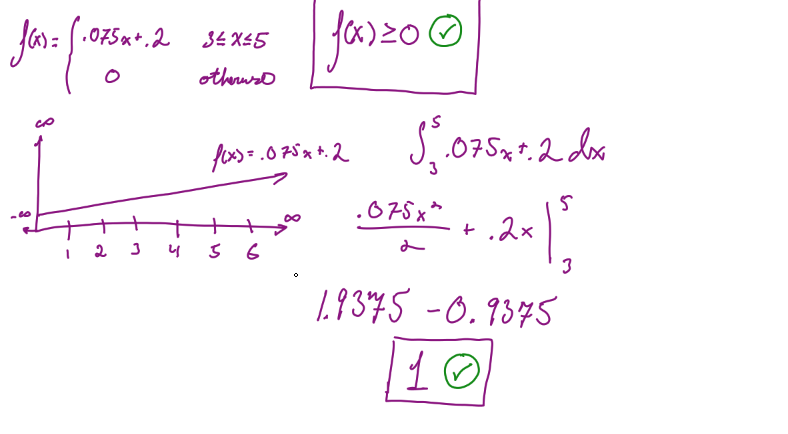 f(x) = { .075x + .2 3 ≤ x ≤ 5
0 otherwise
f(x) ≥ 0 ✓
∞
f(x) = .075x + .2
-∞ ∞
1 2 3 4 5 6
∫₃⁵ .075x + .2 dx
.075x²/2 + .2x |₃⁵
1.9375 - 0.9375
1 ✓